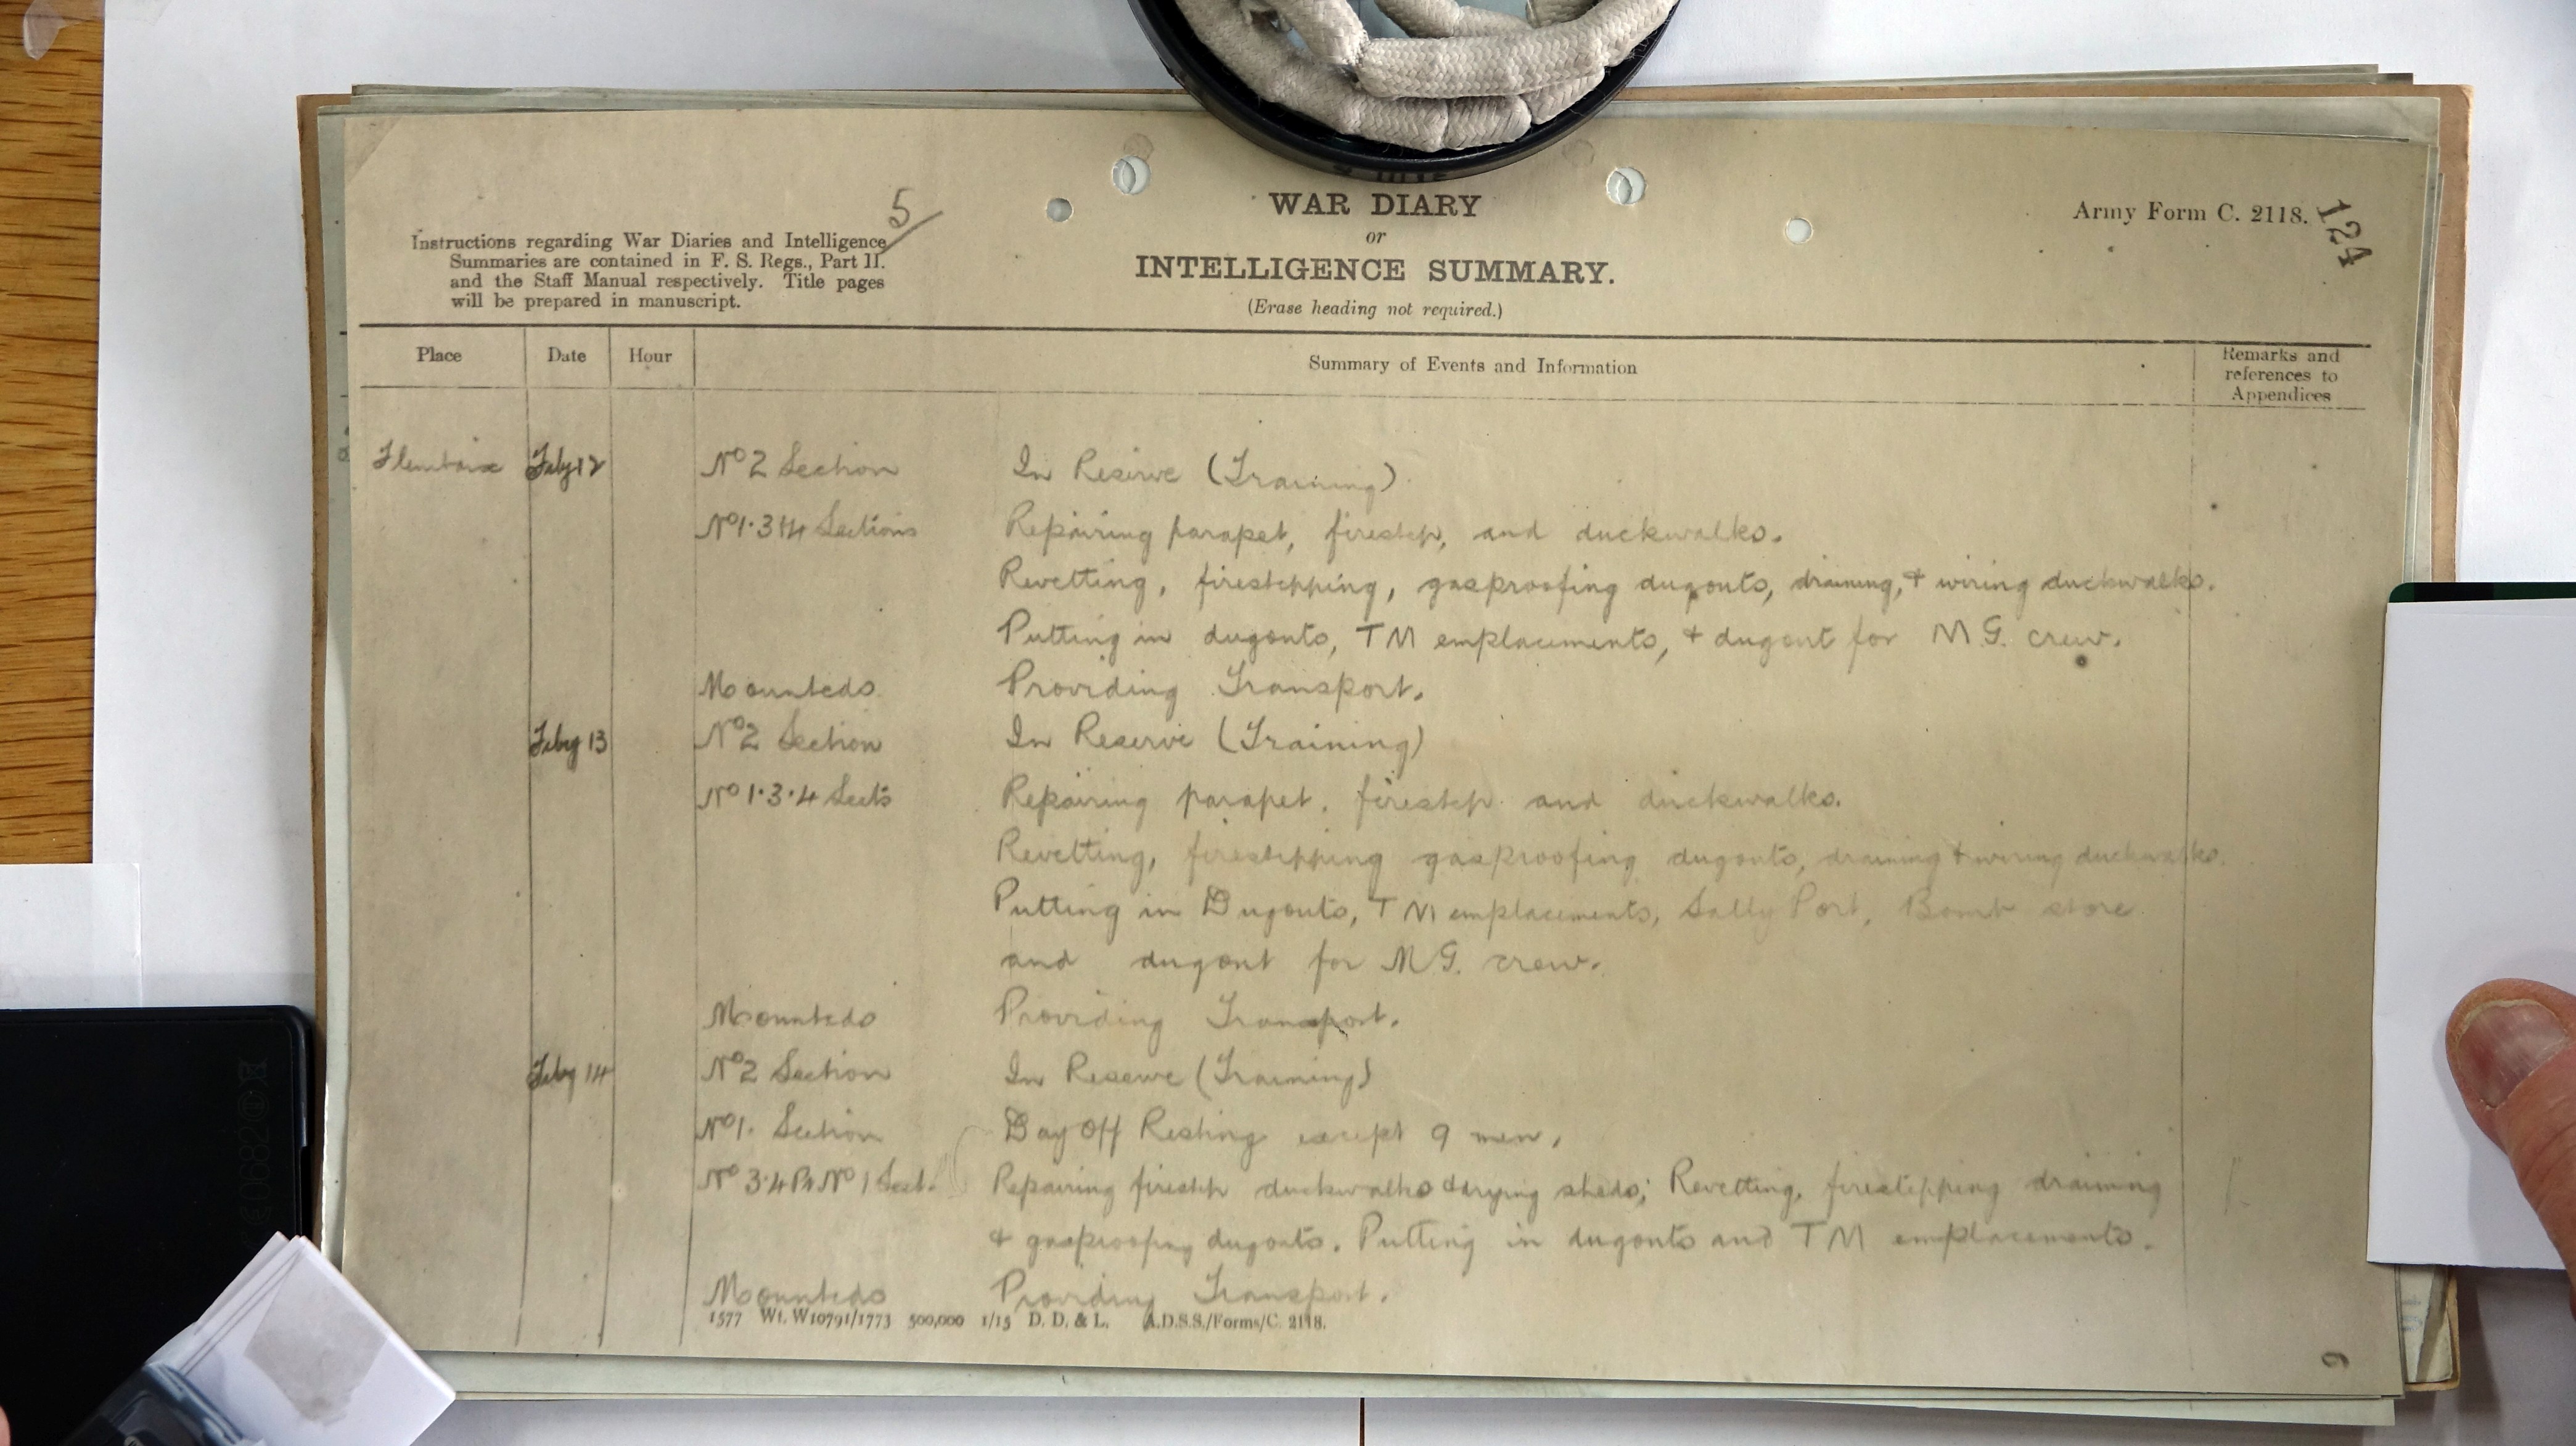 5
WAR DIARY
or
INTELLIGENCE SUMMARY.
(Erase heading not required.)
Army Form C. 2118.
124
Instructions regarding War Diaries and Intelligence
Summaries are contained in F. S. Regs., Part II.
and the Staff Manual respectively. Title pages
will be prepared in manuscript.
Place Date Hour Summary of Events and Information Remarks and
references to
Appendices
Fleurbaix Feby 12 No 2 Section In Reserve (Training)
No 1.3 & 4 Sections Repairing parapet, firestep, and duckwalks.
Revetting, firestepping, gasproofing dugouts, draining, + wiring duckwalks.
Putting in dugouts, TM emplacements, + dugout for M.G. crew.
Mounteds Providing Transport.
Feby 13 No 2 Section In Reserve (Training)
No 1.3.4 Sects Repairing parapet, firestep and duckwalks.
Revetting, firestepping gasproofing dugouts, draining + wiring duckwalks.
Putting in Dugouts, TM emplacements, Sally Port, Bomb store
and dugout for MG. crew.
Mounteds Providing Transport.
Feby 14 No 2 Section In Reserve (Training)
No 1. Section Day Off Resting except 9 men.
No 3.4 Pt No 1 Sect. Repairing firestep duckwalks & drying sheds; Revetting, firestepping draining
+ gasproofing dugouts. Putting in dugouts and TM emplacements.
Mounteds Providing Transport.
1577 Wt. W10791/1773 500,000 1/15 D. D. & L. A.D.S.S./Forms/C. 2118.